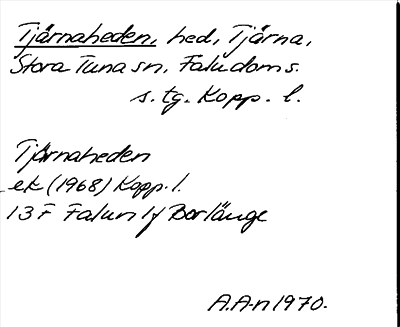 Tjärnaheden, hed, Tjärna,
Stora Tuna sn. Falu doms.
s. tg. Kopp. l.
Tjärnaheden
ek (1968) Kopp. l.
13 F Falun 1 f Borlänge
A.A-n 1970.